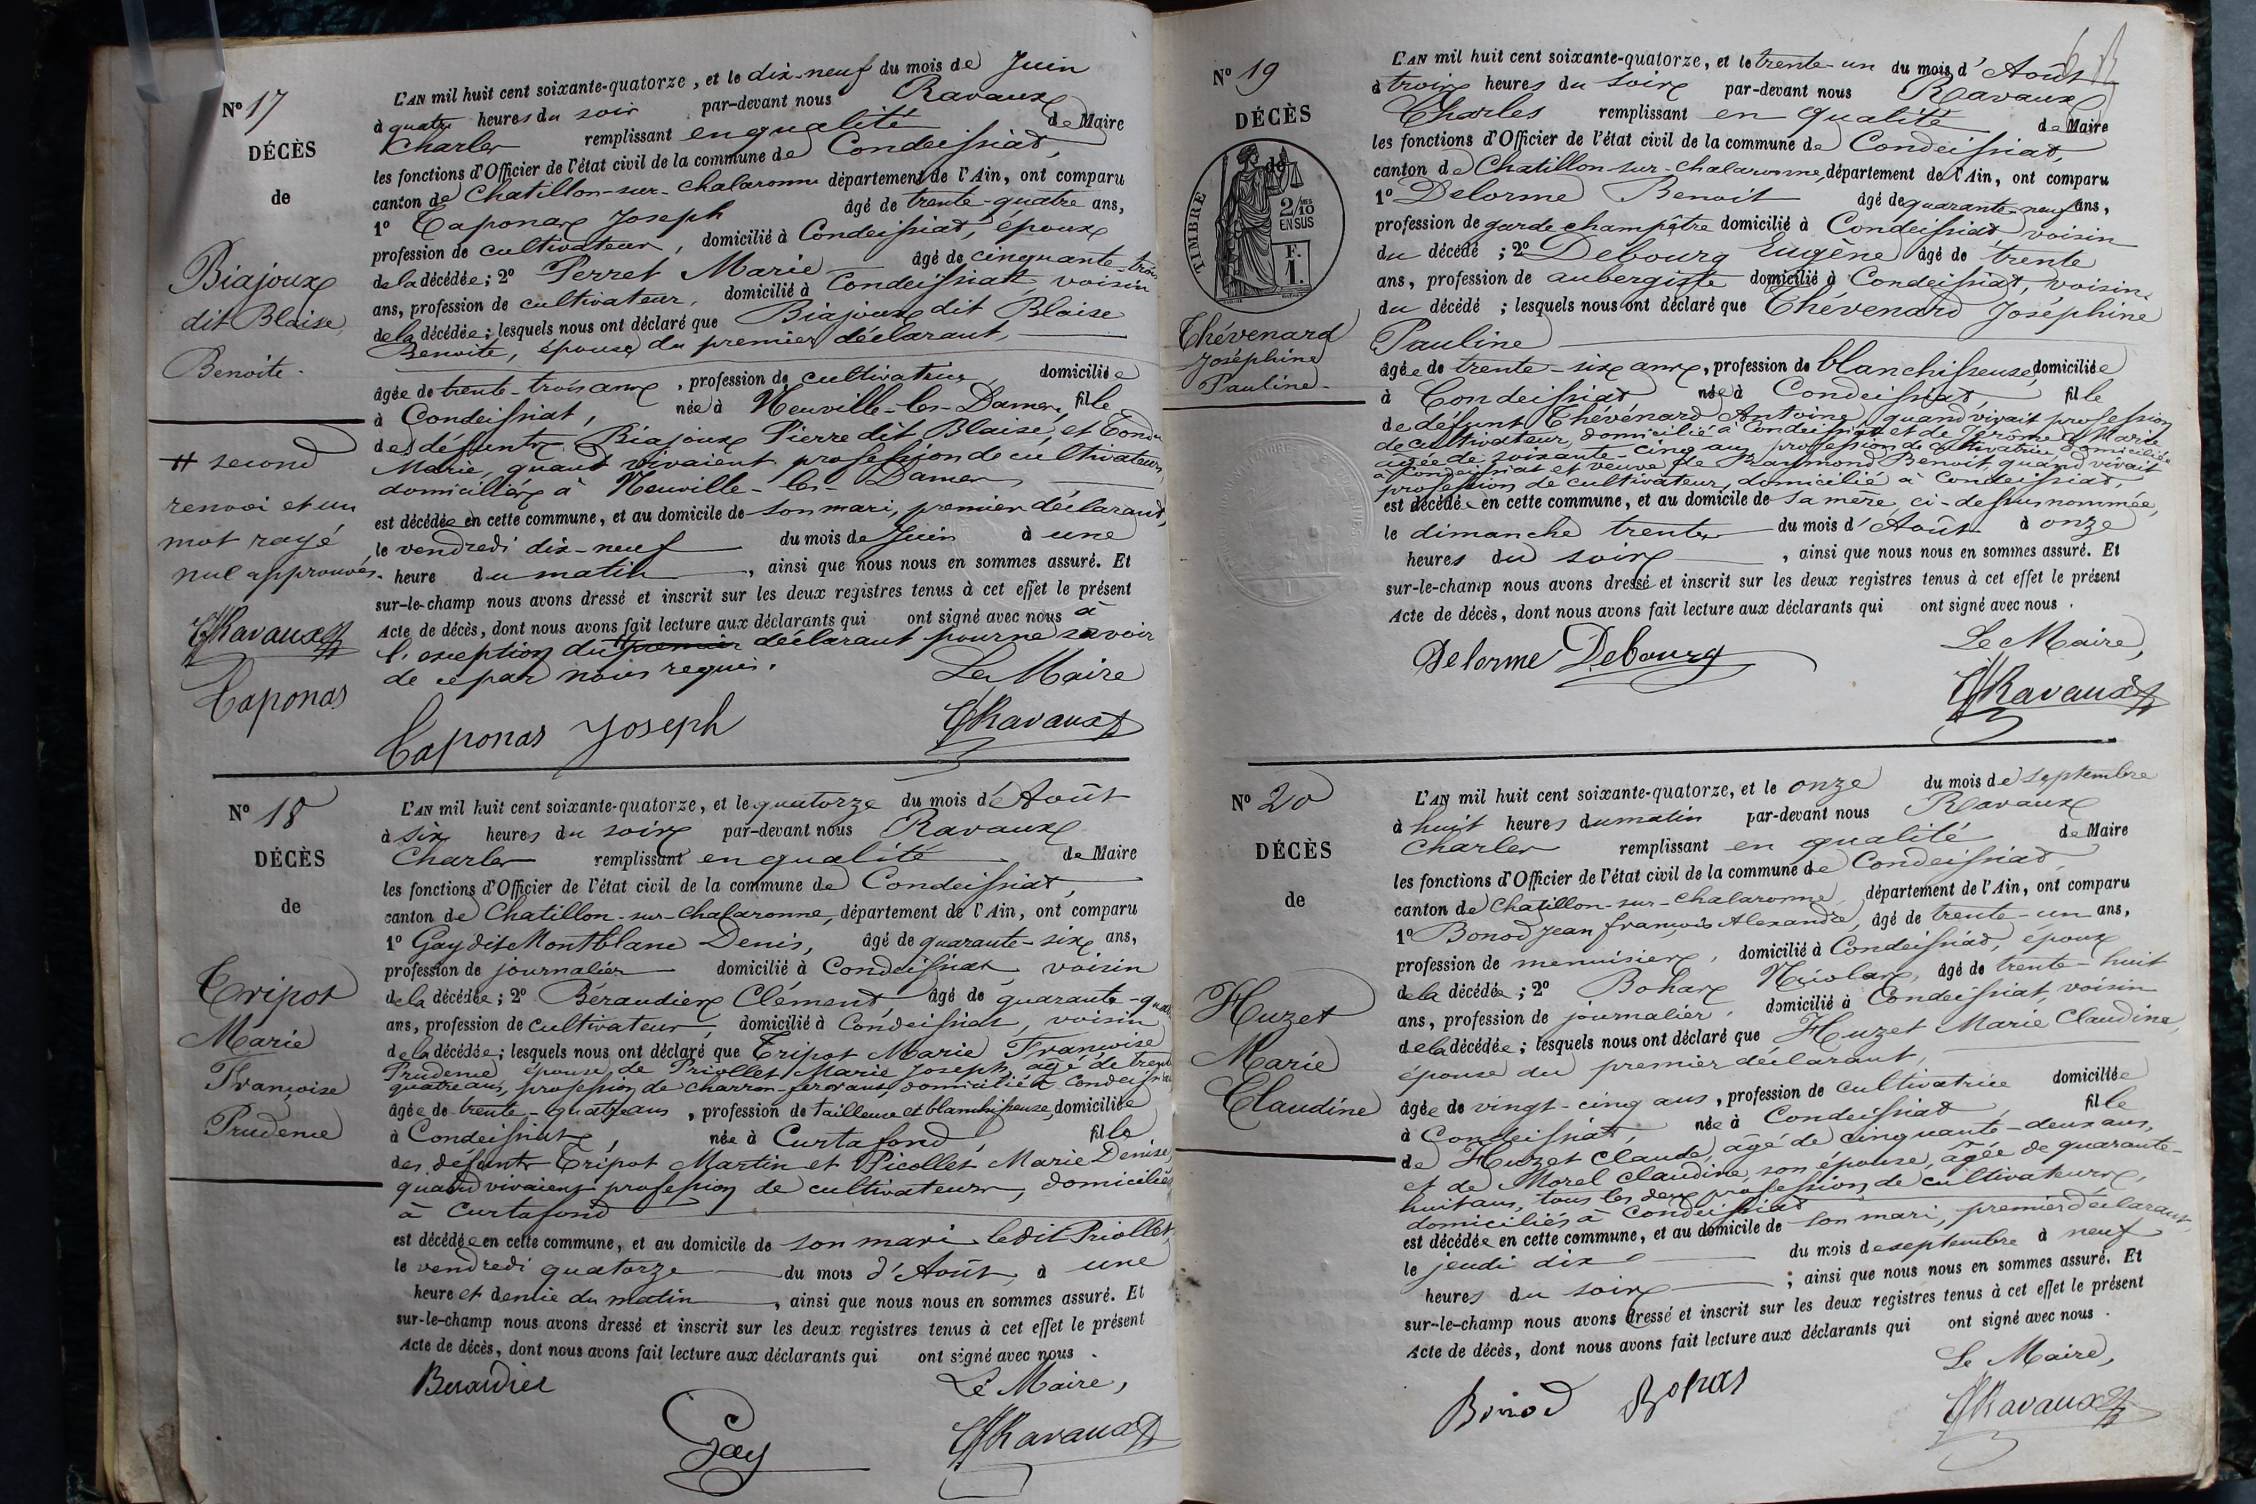 N° 17
DÉCÈS
de
Biajoux
dit Blaise
Benoite.
# second
renvoi et un
mot rayé
nul approuvés.
CRavaux
Caponas
L'AN mil huit cent soixante-quatorze, et le dix-neuf du mois de Juin
à quatre heures du soir par-devant nous Ravaux
Charles remplissant en qualité de Maire
les fonctions d'Officier de l'état civil de la commune de Condeissiat,
canton de Chatillon-sur-Chalaronne département de l'Ain, ont comparu
1° Caponas Joseph âgé de trente-quatre ans,
profession de cultivateur, domicilié à Condeissiat, époux
de la décédée; 2° Perret Marie âgé de cinquante-trois
ans, profession de cultivateur, domicilié à Condeissiat, voisin
de la décédée; lesquels nous ont déclaré que Biajoux dit Blaise
Benoite, épouse du premier déclarant,
âgée de trente-trois ans, profession de cultivateur, domiciliée
à Condeissiat, née à Neuville-les-Dames, fille
des défunts Biajoux Pierre dit Blaise, et
Marie, quand vivaient profession de cultivateurs,
domiciliés à Neuville-les-Dames,
est décédée en cette commune, et au domicile de son mari, premier déclarant,
le vendredi dix-neuf du mois de Juin à une
heure du matin, ainsi que nous nous en sommes assuré. Et
sur-le-champ nous avons dressé et inscrit sur les deux registres tenus à cet effet le présent
Acte de décès, dont nous avons fait lecture aux déclarants qui ont signé avec nous à
l'exception du # premier déclarant pour ne savoir
de ce par nous requis.
Le Maire
Caponas Joseph CRavaux
N° 18
DÉCÈS
de
Tripot
Marie
Françoise
Prudence
L'AN mil huit cent soixante-quatorze, et le quatorze du mois d'Août
à six heures du soir par-devant nous Ravaux
Charles remplissant en qualité de Maire
les fonctions d'Officier de l'état civil de la commune de Condeissiat,
canton de Chatillon-sur-Chalaronne, département de l'Ain, ont comparu
1° Gay dit Montblanc Denis, âgé de quarante-six ans,
profession de journalier domicilié à Condeissiat voisin
de la décédée; 2° Béraudier Clément âgé de quarante-quatre
ans, profession de cultivateur, domicilié à Condeissiat, voisin
de la décédée; lesquels nous ont déclaré que Tripot Marie Françoise
Prudence épouse de Priollet Marie Joseph, âgé de trente
quatre ans, profession de charron-ferrant, domicilié à Condeissiat
âgée de trente-quatre ans, profession de tailleuse et blanchisseuse, domiciliée
à Condeissiat, née à Curtafond, fille
des défunts Tripot Martin et Picollet Marie Denise,
quand vivaient profession de cultivateurs, domiciliés
à Curtafond
est décédée en cette commune, et au domicile de son mari ledit Priollet,
le vendredi quatorze du mois d'Août à une
heure et demie du matin, ainsi que nous nous en sommes assuré. Et
sur-le-champ nous avons dressé et inscrit sur les deux registres tenus à cet effet le présent
Acte de décès, dont nous avons fait lecture aux déclarants qui ont signé avec nous.
Beraudier Le Maire,
Gay CRavaux
N° 19
DÉCÈS
de
TIMBRE
2/10 EN SUS
F. 1.
Thévenard
Joséphine
Pauline
L'AN mil huit cent soixante-quatorze, et le trente-un du mois d'Août
à trois heures du soir par-devant nous Ravaux
Charles remplissant en qualité de Maire
les fonctions d'Officier de l'état civil de la commune de Condeissiat,
canton de Chatillon-sur-Chalaronne, département de l'Ain, ont comparu
1° Delorme Benoit âgé de quarante-neuf ans,
profession de garde champêtre domicilié à Condeissiat voisin
du décédé; 2° Debourg Eugène âgé de trente
ans, profession de aubergiste domicilié à Condeissiat, voisin
du décédé; lesquels nous ont déclaré que Thévenard Joséphine
Pauline
âgée de trente-six ans, profession de blanchisseuse, domiciliée
à Condeissiat née à Condeissiat, fille
de défunt Thévenard Antoine, quand vivait profession
de cultivateur, domicilié à Condeissiat et de Jérôme Marie
âgée de soixante-cinq ans, profession de cultivatrice, domiciliée
à Condeissiat et veuve de Raymond Benoit, quand vivait
profession de cultivateur, domicilié à Condeissiat,
est décédée en cette commune, et au domicile de sa mère, ci-dessus nommée,
le dimanche trente du mois d'Août à onze
heures du soir, ainsi que nous nous en sommes assuré. Et
sur-le-champ nous avons dressé et inscrit sur les deux registres tenus à cet effet le présent
Acte de décès, dont nous avons fait lecture aux déclarants qui ont signé avec nous.
Le Maire,
Delorme Debourg CRavaux
N° 20
DÉCÈS
de
Huzet
Marie
Claudine
L'AN mil huit cent soixante-quatorze, et le onze du mois de septembre
à huit heures du matin par-devant nous Ravaux
Charles remplissant en qualité de Maire
les fonctions d'Officier de l'état civil de la commune de Condeissiat,
canton de Chatillon-sur-Chalaronne, département de l'Ain, ont comparu
1° Bonod Jean François Alexandre, âgé de trente-un ans,
profession de menuisier, domicilié à Condeissiat, époux
de la décédée; 2° Bohas Nicolas, âgé de trente-huit
ans, profession de journalier, domicilié à Condeissiat, voisin
de la décédée; lesquels nous ont déclaré que Huzet Marie Claudine,
épouse du premier déclarant,
âgée de vingt-cinq ans, profession de cultivatrice domiciliée
à Condeissiat, née à Condeissiat, fille
de Huzet Claude, âgé de cinquante-deux ans,
et de Morel Claudine, son épouse, âgée de quarante-
huit ans, tous les deux profession de cultivateurs,
domiciliés à Condeissiat
est décédée en cette commune, et au domicile de son mari, premier déclarant,
le jeudi dix du mois de septembre à neuf
heures du soir; ainsi que nous nous en sommes assuré. Et
sur-le-champ nous avons dressé et inscrit sur les deux registres tenus à cet effet le présent
Acte de décès, dont nous avons fait lecture aux déclarants qui ont signé avec nous.
Le Maire,
Bonod Bohas CRavaux